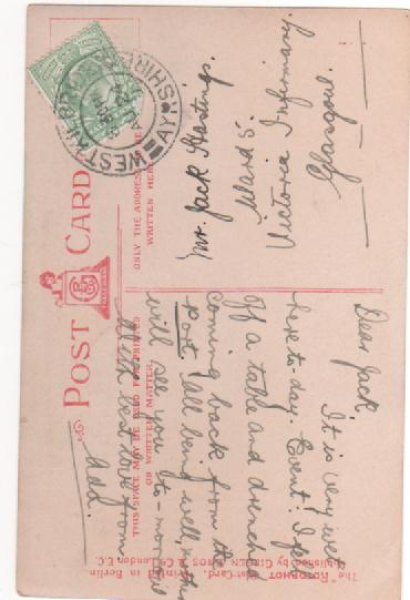 POST CARD
THIS SPACE MAY BE USED FOR PRINTED
OR WRITTEN MATTER.
ONLY THE ADDRESS
WRITTEN HERE
WEST KILBRIDE
AYRSHIRE
AU 24
Dear Jack
It is very wet
here to-day. Event! I
If a table and
coming back from the
post all being well,
will see you to-morrow
With best love from
Add.
Mr. Jack Hastings.
Ward 5.
Victoria Infirmary.
Glasgow.
The ROTOPHOT Post-Card. Printed in Berlin
Published by GIESEN BROS & Co London E.C.